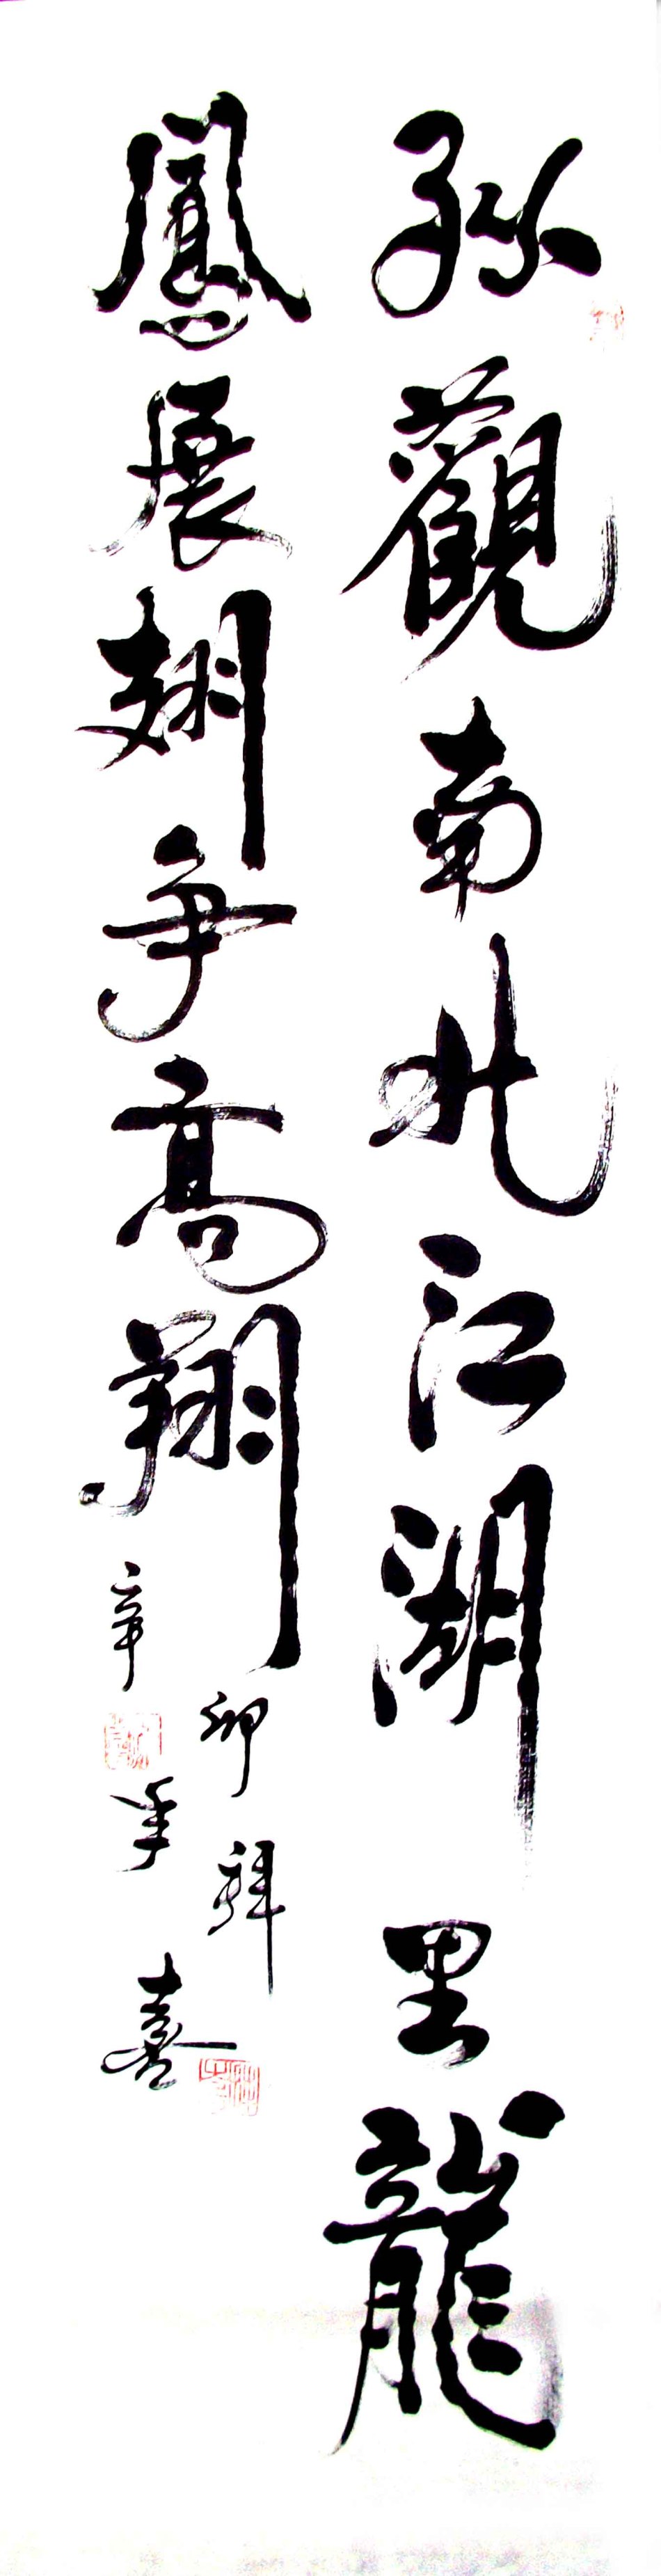 纵觀南北江湖里龍
鳳展翅争高翔
辛卯年拜喜